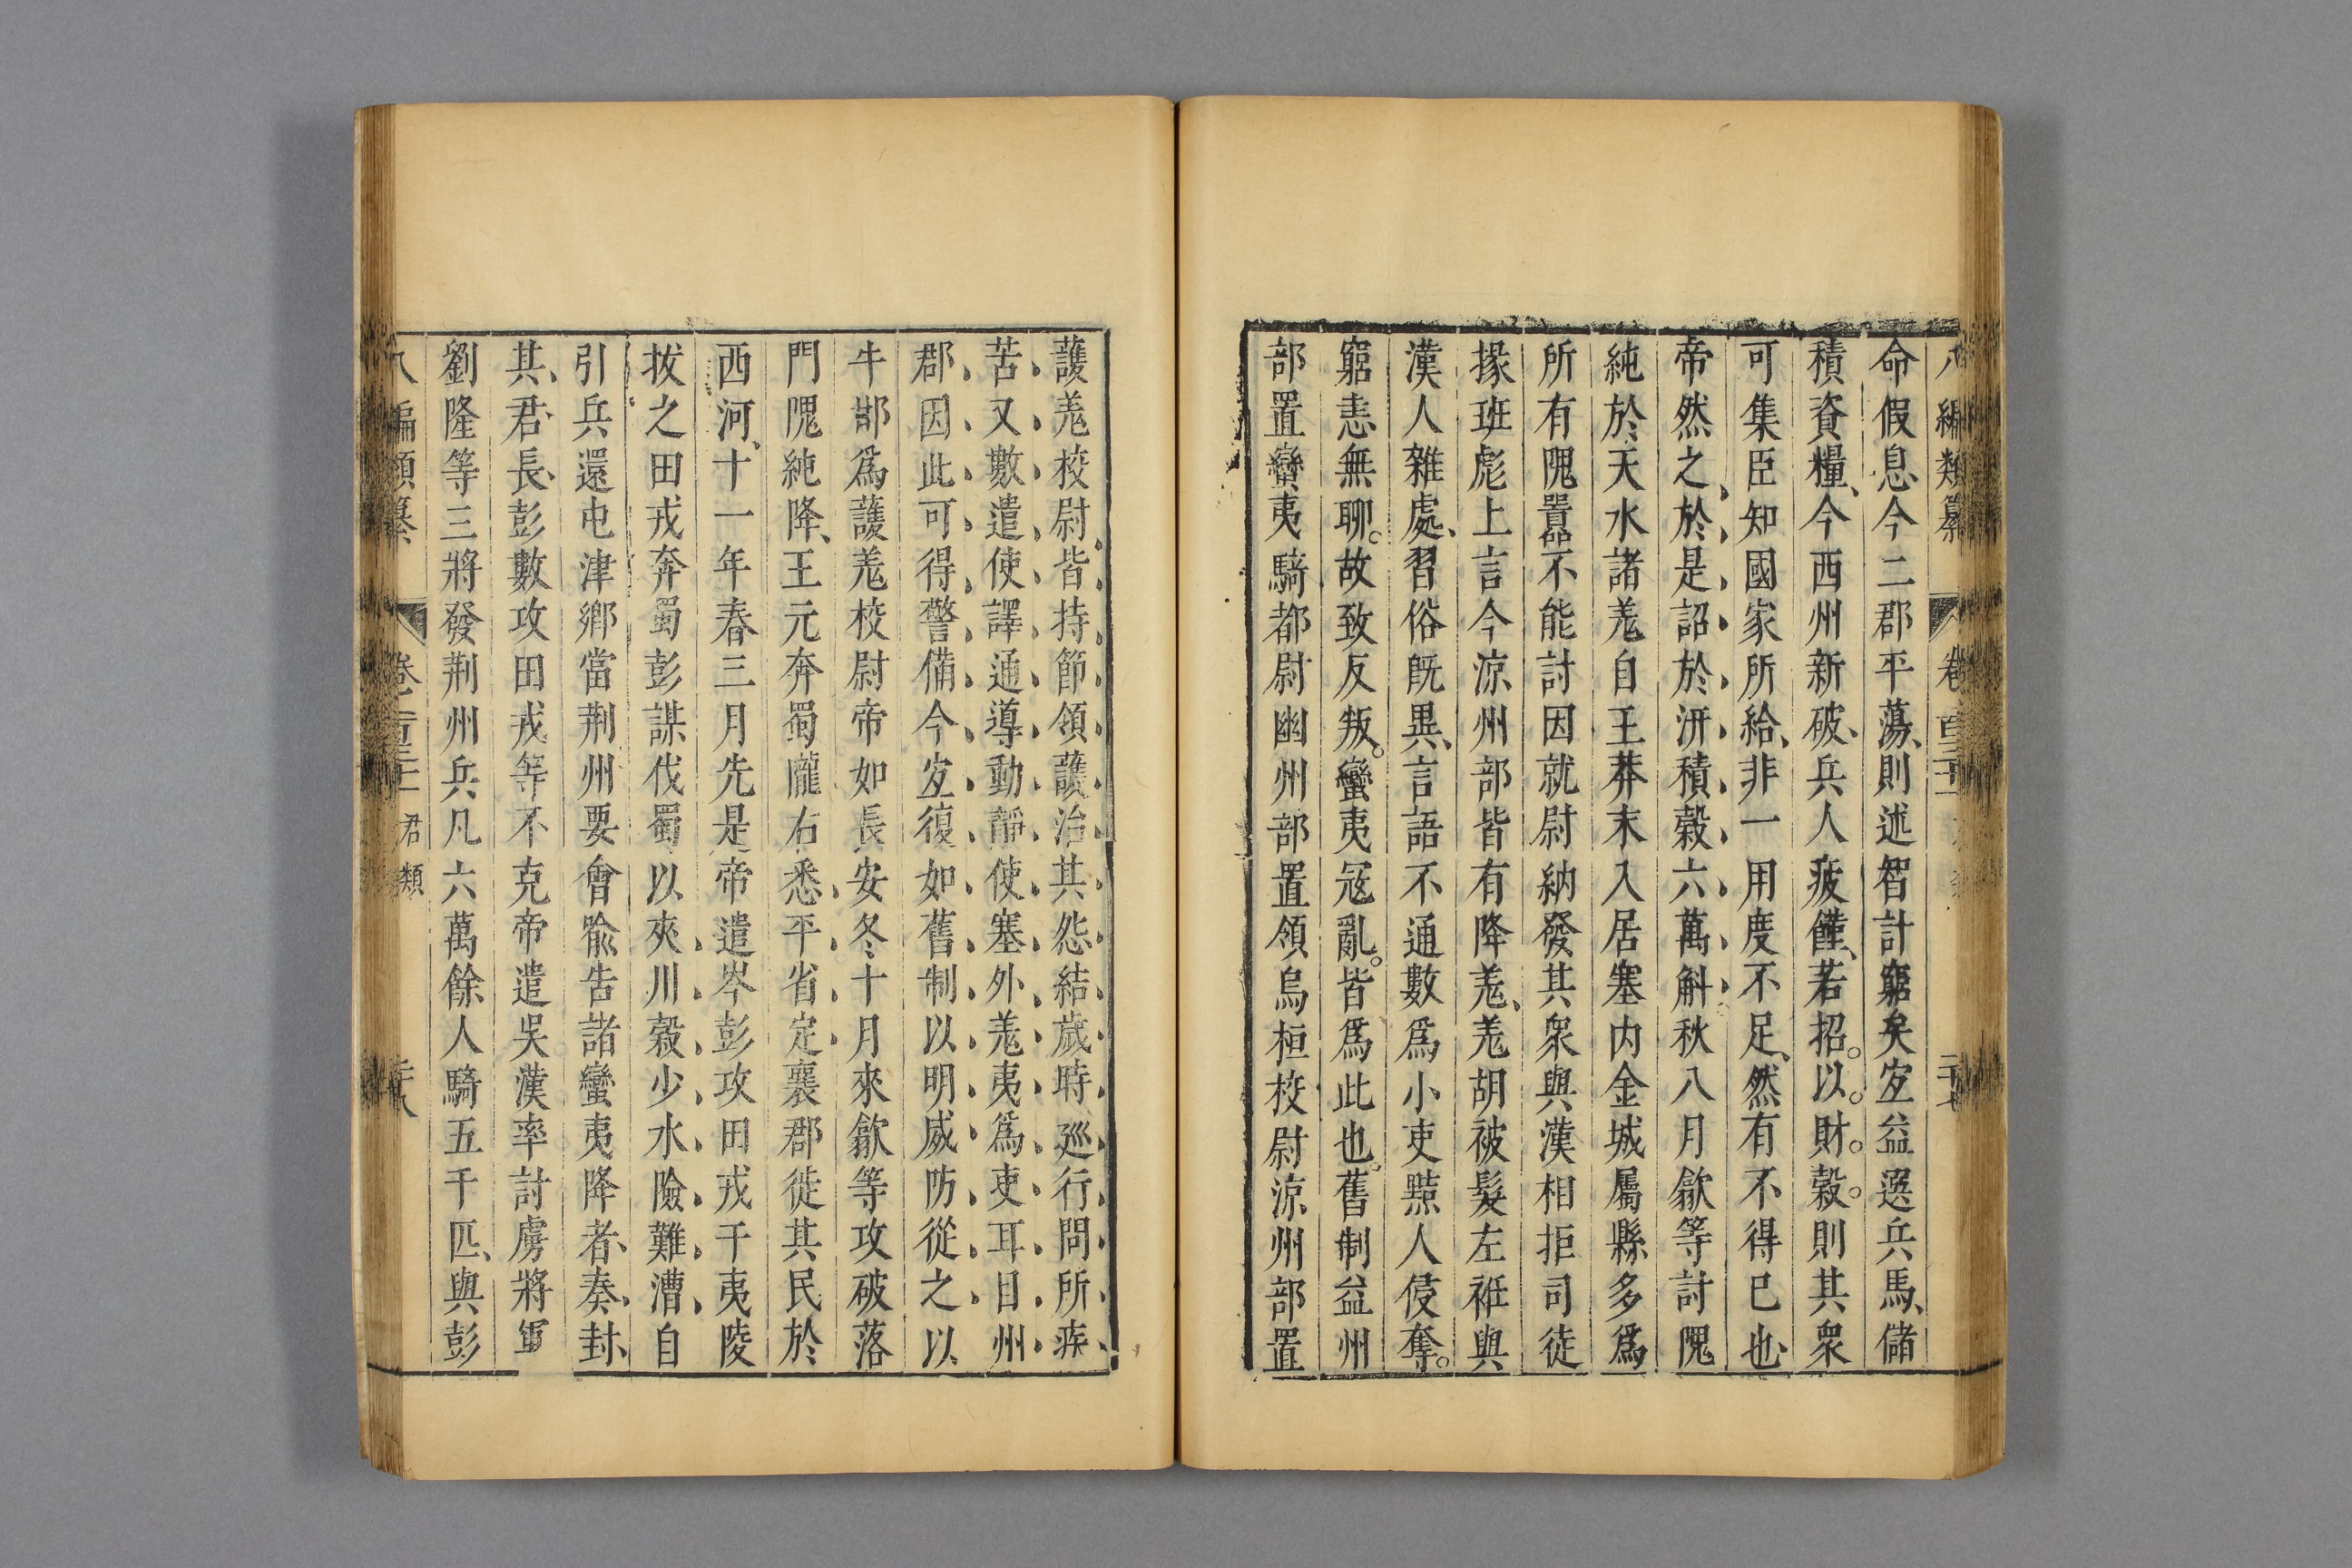 八編類纂 卷百三十 二十七
命假息今二郡平蕩則述智計窮矣宐益選兵馬儲
積資糧今西州新破兵人疲饉若招以財穀則其衆
可集臣知國家所給非一用度不足然有不得已也
帝然之於是詔於汧積穀六萬斛秋八月歙等討隗
純於天水諸羌自王莽末入居塞内金城屬縣多爲
所有隗囂不能討因就尉納發其衆與漢相拒司徒
掾班彪上言今涼州部皆有降羌羌胡被髮左袵與
漢人雜處習俗旣異言語不通數爲小吏黠人侵奪
窮恚無聊故致反叛蠻夷冦亂皆爲此也舊制益州
部置蠻夷騎都尉幽州部置領烏桓校尉涼州部置
護羌校尉皆持節領護治其怨結歲時廵行問所疾
苦又數遣使譯通導動靜使塞外羌夷爲吏耳目州
郡因此可得警備今宐復如舊制以明威防從之以
牛邯爲護羌校尉帝如長安冬十月來歙等攻破落
門隗純降王元奔蜀隴右悉平省定襄郡徙其民於
西河十一年春三月先是帝遣岑彭攻田戎于夷陵
拔之田戎奔蜀彭謀伐蜀以夾川穀少水險難漕自
引兵還屯津鄉當荆州要會喻告諸蠻夷降者奏封
其君長彭數攻田戎等不克帝遣吳漢率討虜將軍
劉隆等三將發荆州兵凡六萬餘人騎五千匹與彭
八編類纂 卷百三十 君類 二十八